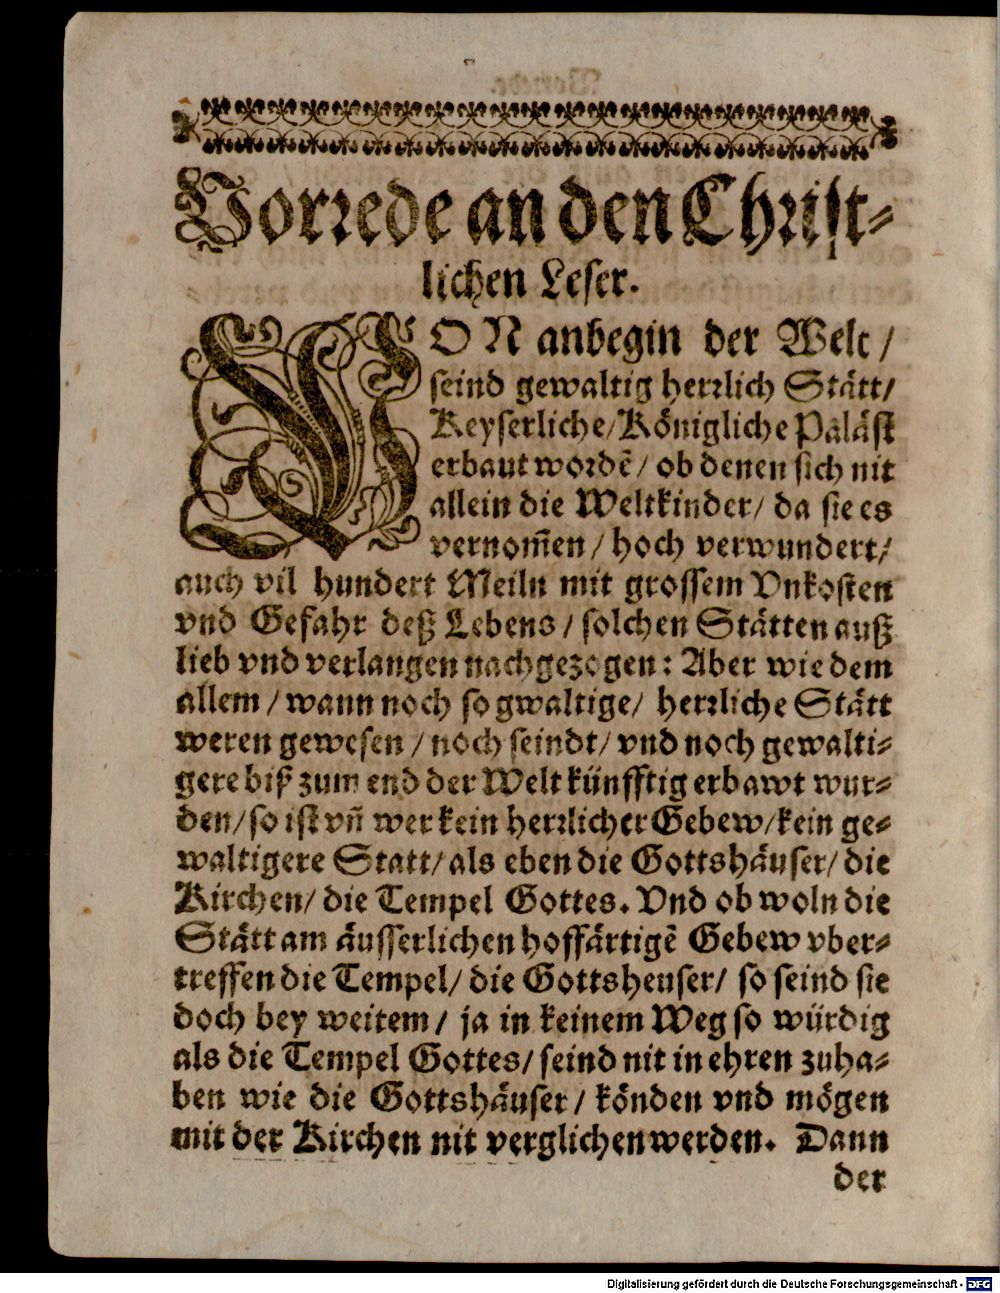 Vorrede an den Christ⸗
lichen Leser.
VON anbegin der Welt /
seind gewaltig herrlich Stätt/
Keyserliche/Königliche Paläst
erbaut wordē/ ob denen sich nit
allein die Weltkinder/ da sie es
vernom̃en / hoch verwundert/
auch vil hundert Meiln mit grossem Vnkosten
vnd Gefahr deß Lebens / solchen Stätten auß
lieb vnd verlangen nachgezogen: Aber wie dem
allem / wann noch so gwaltige/ herrliche Stätt
weren gewesen / noch seindt/ vnd noch gewalti⸗
gere biß zum end der Welt künfftig erbawt wur⸗
den/ so ist vñ wer kein herrlicher Gebew/kein ge⸗
waltigere Statt/ als eben die Gottshäuser/ die
Kirchen/ die Tempel Gottes. Vnd ob woln die
Stätt am äusserlichen hoffärtigē Gebew vber⸗
treffen die Tempel/ die Gottsheuser/ so seind sie
doch bey weitem / ja in keinem Weg so würdig
als die Tempel Gottes/ seind nit in ehren zuha⸗
ben wie die Gottshäuser / könden vnd mögen
mit der Kirchen nit verglichen werden. Dann
der
Digitalisierung gefördert durch die Deutsche Forschungsgemeinschaft - DFG